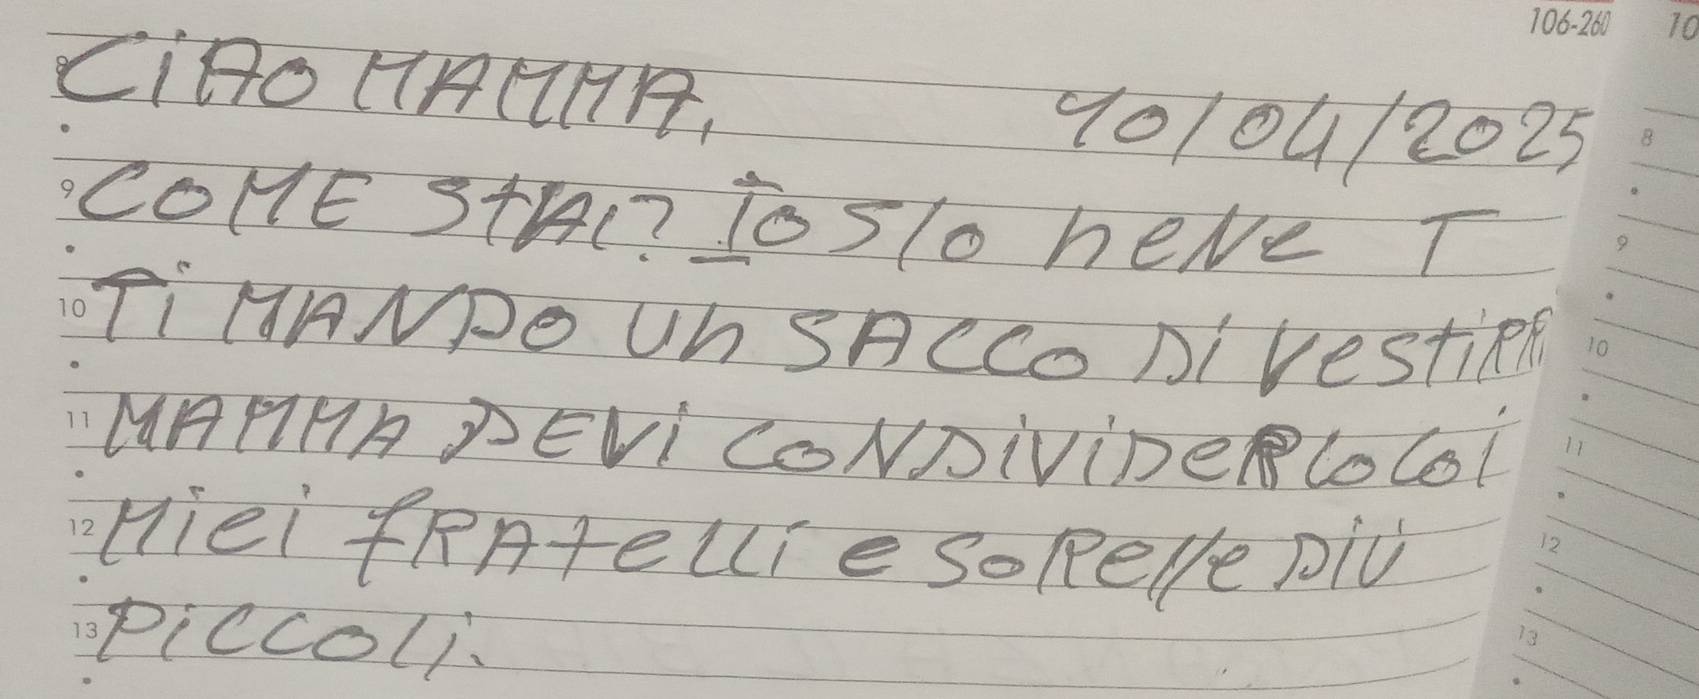 106-260 10
CiAO MAMMA,
10/04/2025
COME StAi? Io Sto beNe T
Ti MANDO Un SACCO Di VestiRE
MAMMA DEVi CoNDiViDeRlo Coi
Miei fRAtelli e SoRelle Più
PiCCOli.
8
9
10
11
12
13
9
10
11
12
13